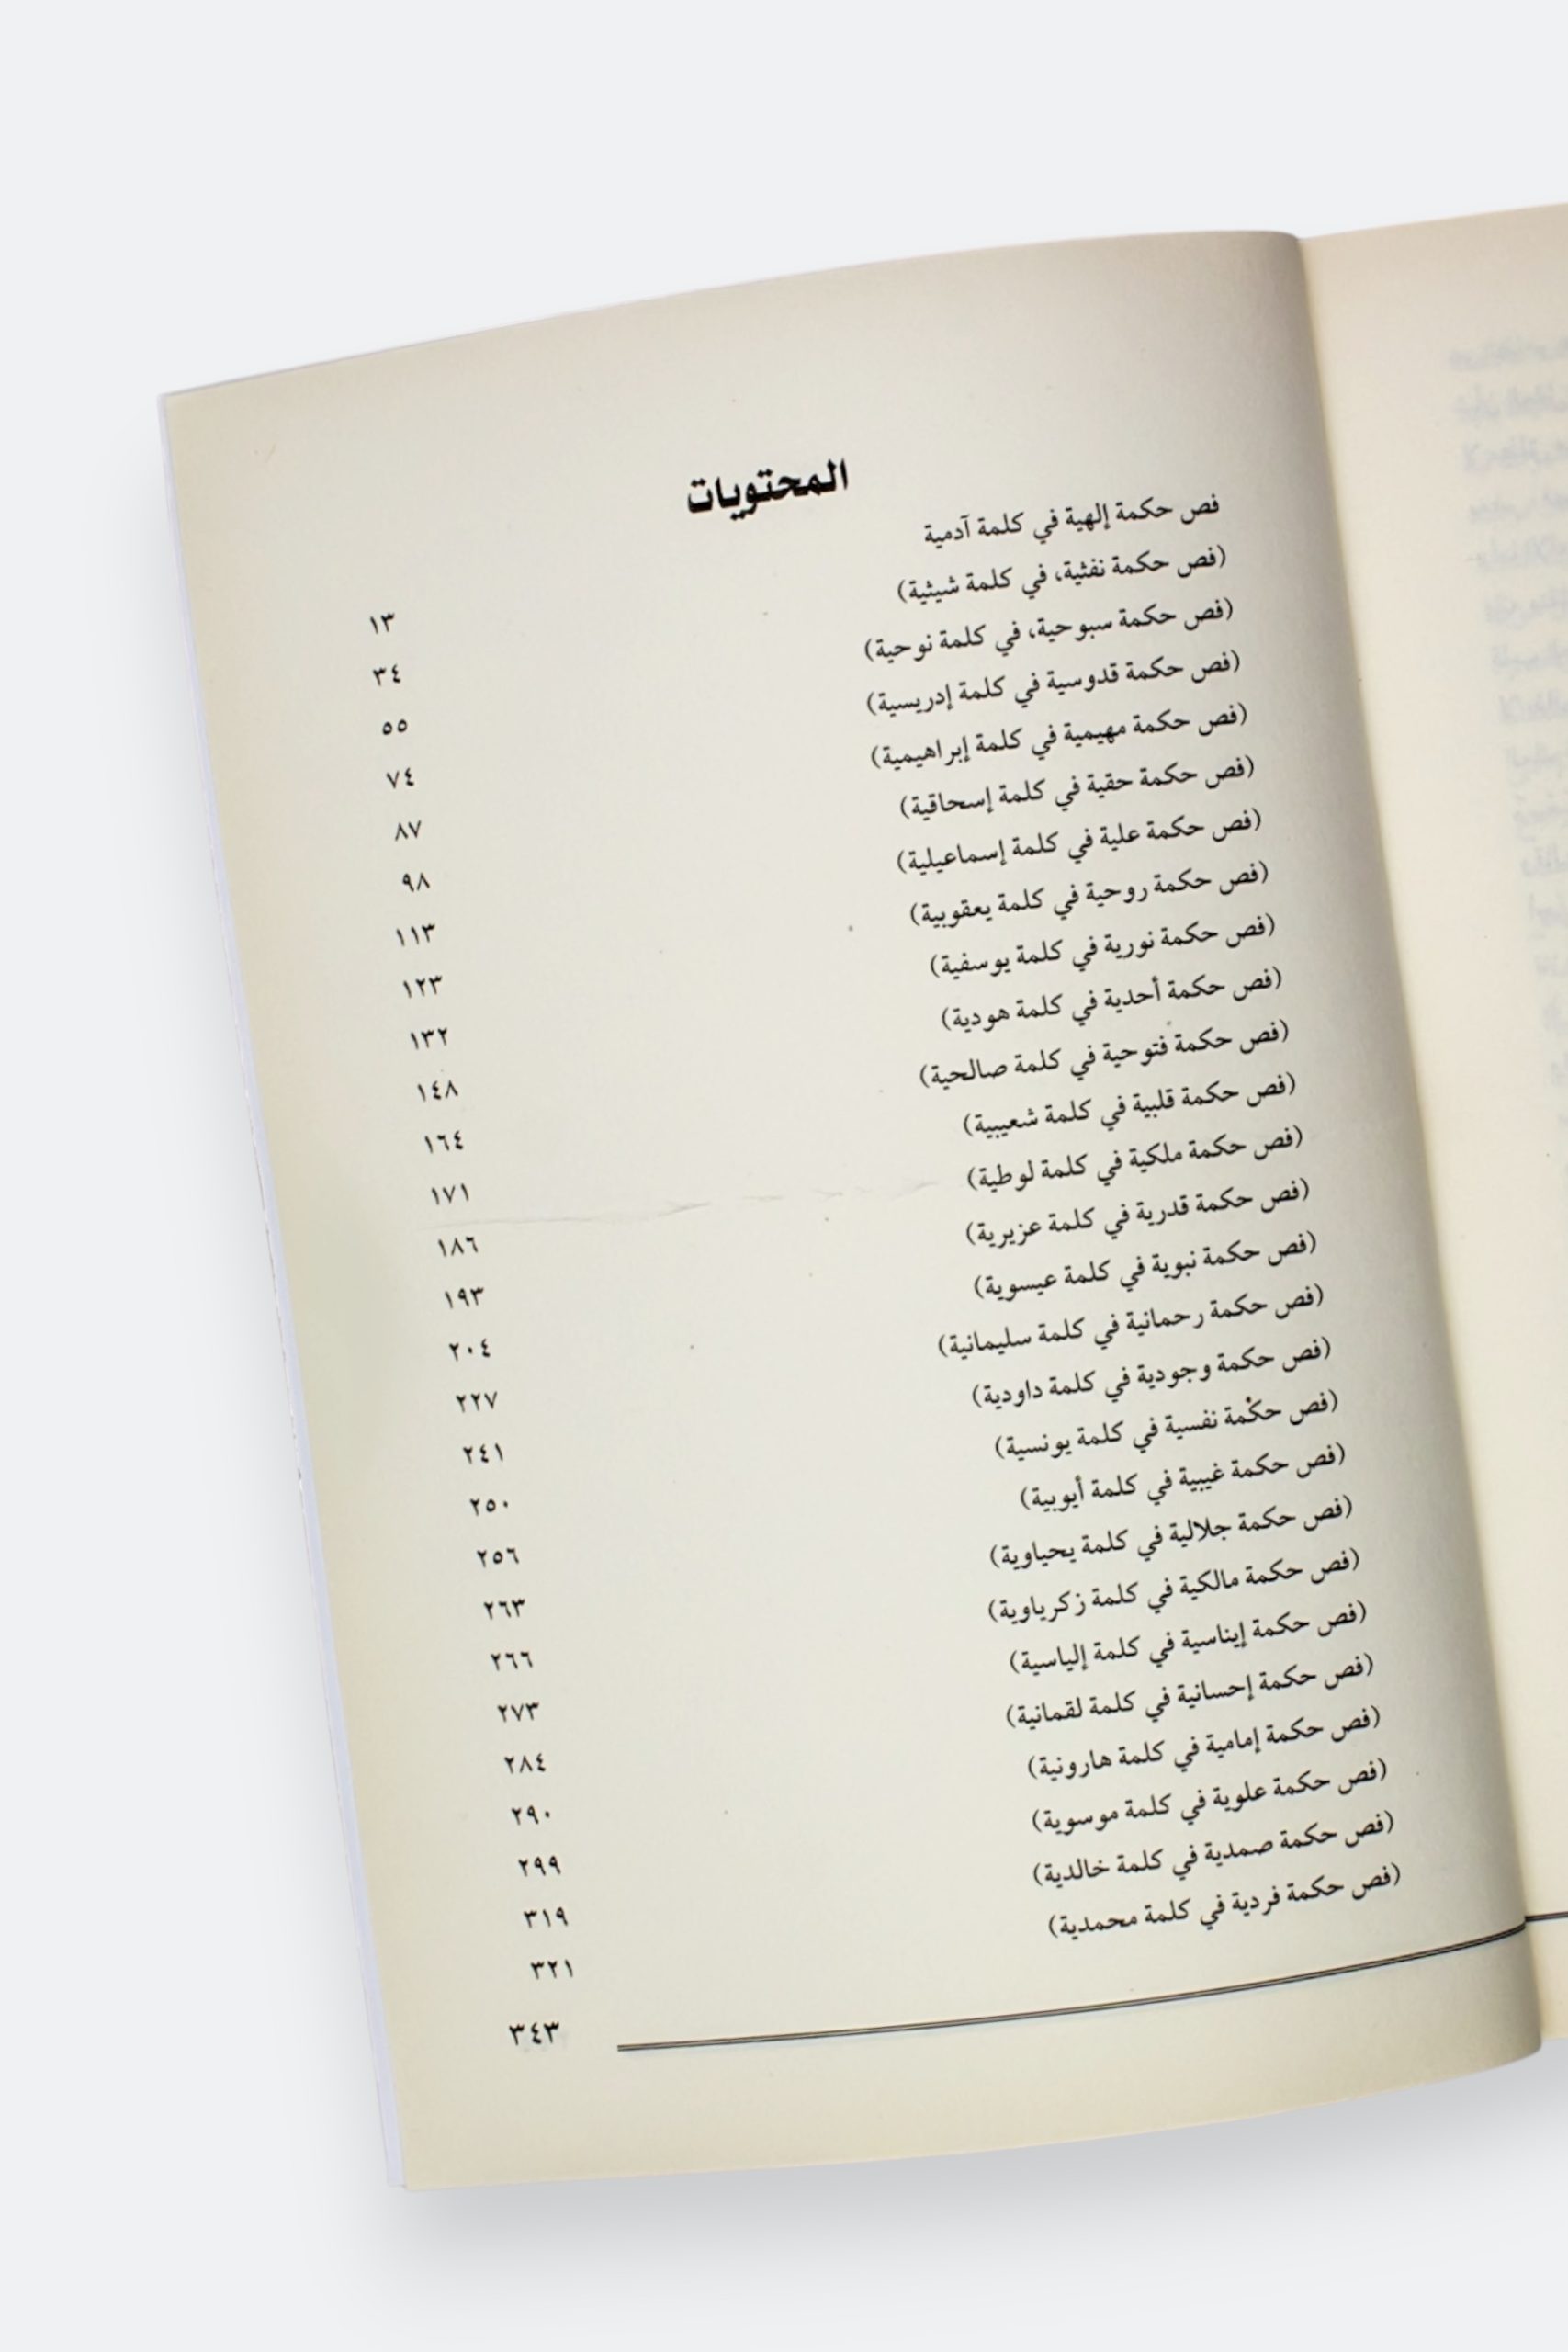 المحتويات
فص حكمة إلهية في كلمة آدمية ١٣
(فص حكمة نفثية، في كلمة شيثية) ٣٤
(فص حكمة سبوحية، في كلمة نوحية) ٥٥
(فص حكمة قدوسية في كلمة إدريسية) ٧٤
(فص حكمة مهيمية في كلمة إبراهيمية) ٨٧
(فص حكمة حقية في كلمة إسحاقية) ٩٨
(فص حكمة علية في كلمة إسماعيلية) ١١٣
(فص حكمة روحية في كلمة يعقوبية) ١٢٣
(فص حكمة نورية في كلمة يوسفية) ١٣٢
(فص حكمة أحدية في كلمة هودية) ١٤٨
(فص حكمة فتوحية في كلمة صالحية) ١٦٤
(فص حكمة قلبية في كلمة شعيبية) ١٧١
(فص حكمة ملكية في كلمة لوطية) ١٨٦
(فص حكمة قدرية في كلمة عزيرية) ١٩٣
(فص حكمة نبوية في كلمة عيسوية) ٢٠٤
(فص حكمة رحمانية في كلمة سليمانية) ٢٢٧
(فص حكمة وجودية في كلمة داودية) ٢٤١
(فص حكمة نفسية في كلمة يونسية) ٢٥٠
(فص حكمة غيبية في كلمة أيوبية) ٢٥٦
(فص حكمة جلالية في كلمة يحياوية) ٢٦٣
(فص حكمة مالكية في كلمة زكرياوية) ٢٦٦
(فص حكمة إيناسية في كلمة إلياسية) ٢٧٣
(فص حكمة إحسانية في كلمة لقمانية) ٢٨٤
(فص حكمة إمامية في كلمة هارونية) ٢٩٠
(فص حكمة علوية في كلمة موسوية) ٢٩٩
(فص حكمة صمدية في كلمة خالدية) ٣١٩
(فص حكمة فردية في كلمة محمدية) ٣٢١
٣٤٣